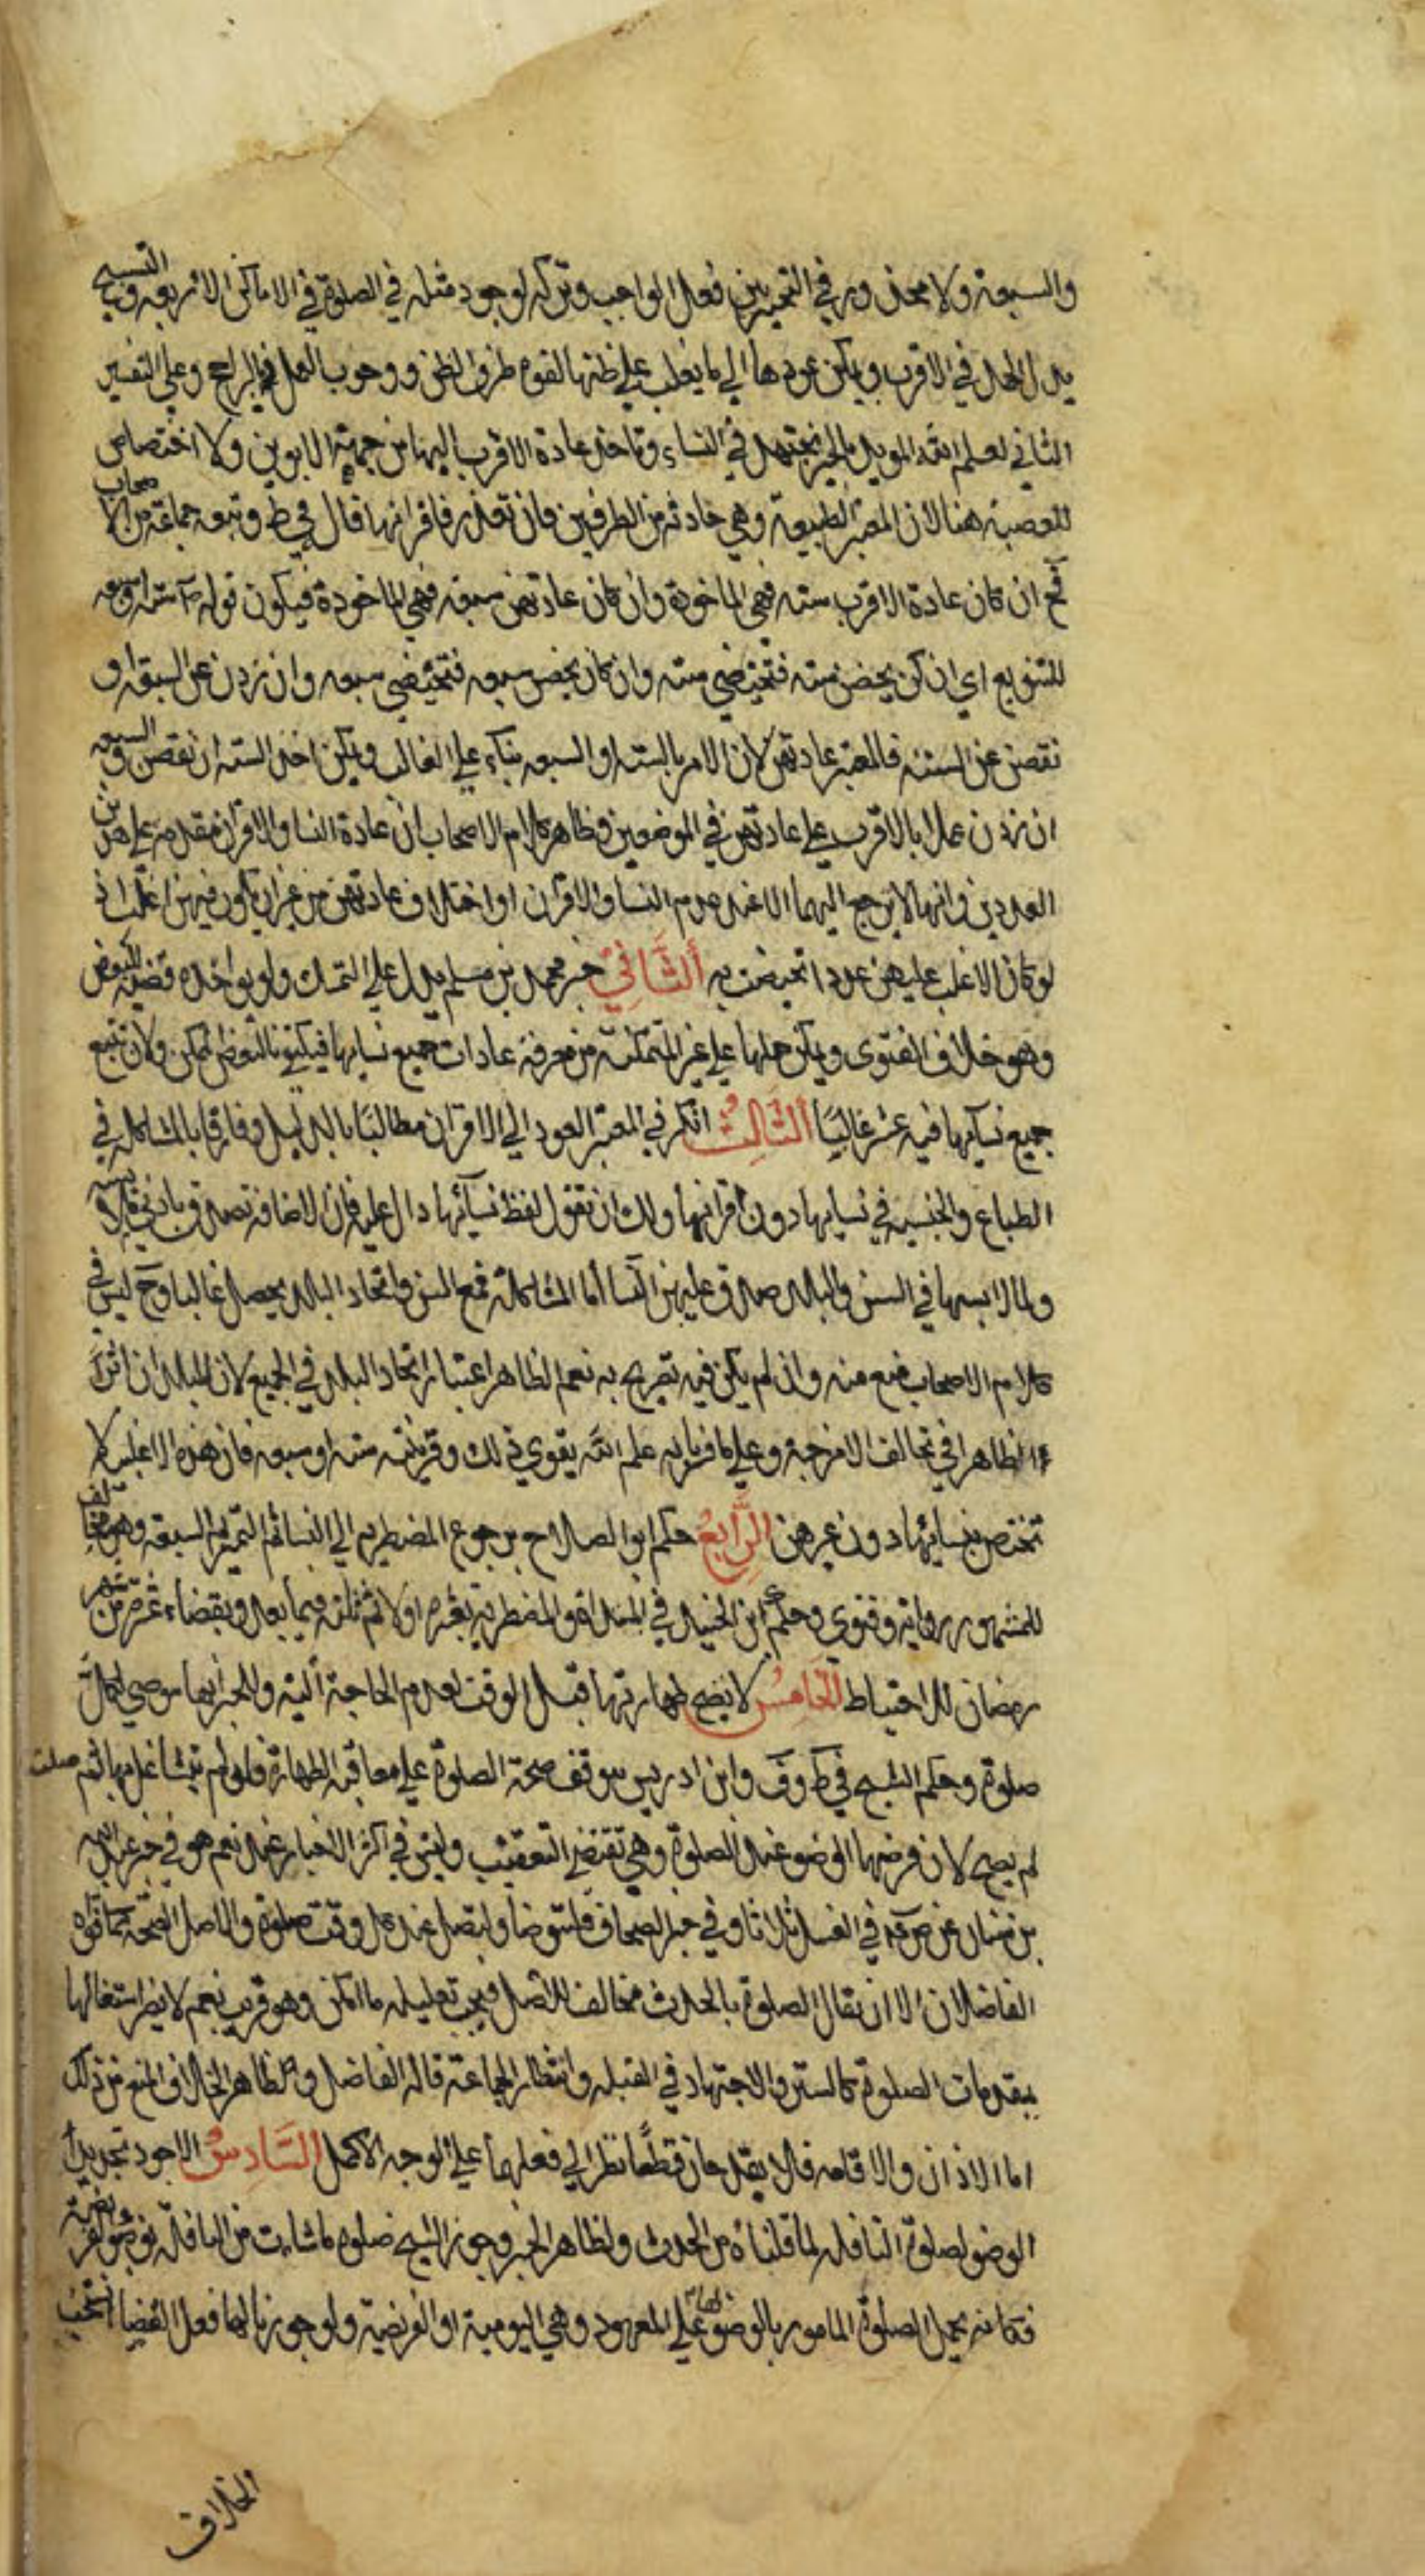 والسبعة ولا محذور في التخيير بين فعل الواجب وتركه لوجود مثله في الصلوة في الاماكن الاربعة و التسبيح
بدل الحمد في الاقرب ويمكن عودها الي ما يغلب علي ظنها لقوه طرف الظن ووجوب العمل بالراجح وعلي التفسير
الثاني لعلم الله المويد بالخبر تجتهد في النساء وتاخذ عادة الاقرب اليها من جهة الابوين ولا اختصاص
للعصبة هنا لان المعتبر الطبيعة وهي حادثه من الطرفين فان تعذر فاقرانها قال في ط وتبعه جماعة من الاصحاب
فح ان كان عادة الاقرب سته فهي الماخوذة وان كان عادتهن سبعه فهي الماخوذة فيكون قوله ستة او سبعه
للتنويع اي ان كن يحضن سته فتحيضي سته وان كان يحضن سبعه فتحيضي سبعه وان زدن عن السبعة او
نقصن عن الستة فالمعتبر عادتهن لان الامر بالسته او السبعه بناء علي الغالب ويمكن اخذ السته ان نقصن والسبعه
ان زدن عملا بالاقرب علي عادتهن في الموضعين وظاهر كلام الاصحاب ان عادة النسا والاقران مقدمة علي هذين
العددين وانها لا ترجع اليهما الا عند عدم النسا والاقران او اختلاف عادتهن من غير ان يكون فيهن اغلب اذ
لو كان الاغلب عليهن عددا تحيضت به الثاني خبر محمد بن مسلم يدل علي التمسك ولو بواحده قضيه للبعض
وهو خلاف الفتوى ويمكن حملها علي غير المتمكنة من معرفة عادات جميع نسايها فيكتفي بالبعض الممكن ولان تتبع
جميع نسائها فيه عسر غالبا الثالث انكر في المعتبر العود الي الاقران مطالبا بالدليل وفارقا بالمشاكله في
الطباع والجنسيه في نسايها دون اقرانها ولك ان تقول لفظ نسائها دال عليه فان الاضافة تصدق بادنى ملابسة
ولما لابسها في السن والبلد صدق عليهن النسا اما المشاكلة فمع السن واتحاد البلد يحصل غالبا وح ليس في
كلام الاصحاب منع منه وان لم يكن فيه تصريح به نعم الظاهر اعتبار اتحاد البلد في الجميع لان للبلدان اثرا
ظاهرا في تخالف الامزجة وعلي ما فربه علم الله يقوي ذلك وقرينته سته او سبعه فان هذه الاغلب لا
تختص بنسائها دون غيرهن الرابع حكم ابو الصلاح برجوع المضطربه الي النسا ثم التمييز ثم السبعة وهو مخالف
للمشهور رواية وفتوى وحكم ابن الجنيد في المبتدأة والمضطربة بعشرة اولا ثم ثلثه فيما بعد وبقضاء عشرة من شهر
رمضان للاحتياط الخامس لا يصح طهارتها قبل الوقت لعدم الحاجة اليه والخبر انها توضي لكل
صلوة وحكم الشيخ في ط وف وابن ادريس بتوقف صحة الصلوة علي معاقبة الطهارة فلو لم يتشاغل بها ثم صلت
لم يصح لان فرضها الوضو عند الصلوة وهي تقتضي التعقيب وليس في اكثر الاخبار عند نعم هو في خبر عبد الله
بن سنان عن ص في الغسل ثلاثا وفي خبر الصحاف فلتتوضأ ولتصل عند كل وقت صلوة والاصل الصحة كما قواه
الفاضلان الا ان يقال الصلوة بالحدث مخالف للاصل فيجب تعليله ما امكن وهو قريب نعم لا يضر اشتغالها
بمقدمات الصلوة كالستر والاجتهاد في القبله وانتظار الجماعة قاله الفاضل وظاهر الخلاف المنع من ذلك
اما الاذان والاقامه فلا يقدحان قطعا نظرا الي فعلهما علي الوجه الاكمل السادس الاجود تجديد
الوضو لصلوة النافله لما قلناه من الحدث ولظاهر الخبر وجوز الشيخ صلوة ما شاءت من النافلة بوضو فريضة
فكانه يحمل الصلوة المامور بالوضو لها علي المعهود وهي اليومية او الفريضة ولو جوزنا لها فعل القضا انسحب
الخلاف